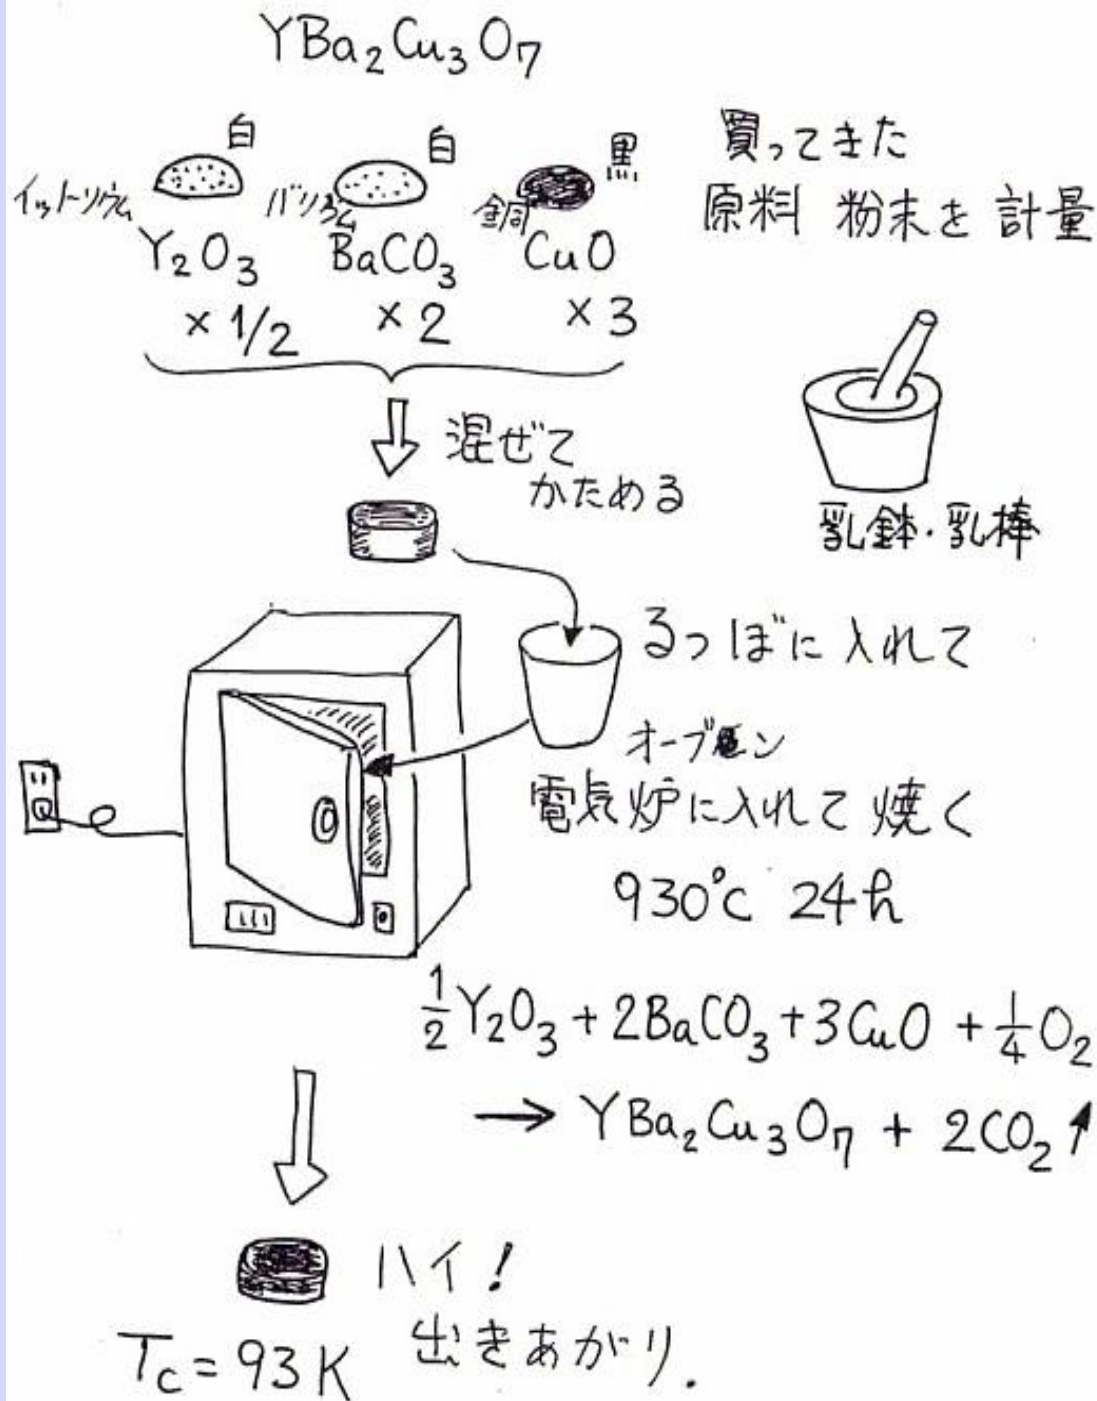 YBa₂Cu₃O₇
白 白 黒
イットリウム バリウム 銅
Y₂O₃ BaCO₃ CuO
× 1/2 × 2 × 3
買ってきた
原料 粉末を 計量
混ぜて
かためる
乳鉢・乳棒
るつぼに 入れて
オーブン
電気炉に入れて 焼く
930℃ 24h
1/2 Y₂O₃ + 2BaCO₃ + 3CuO + 1/4 O₂
→ YBa₂Cu₃O₇ + 2CO₂↑
ハイ!
出きあがり.
Tc = 93 K